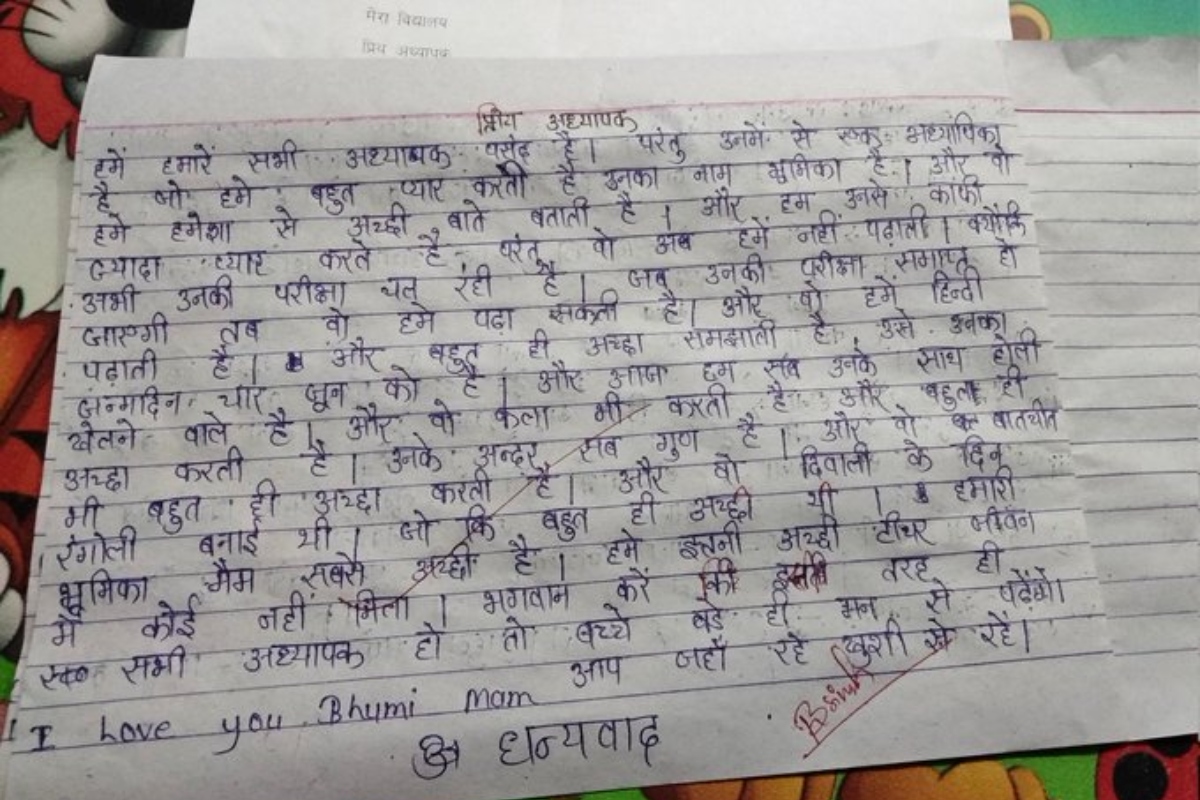 मेरा विद्यालय
प्रिय अध्यापक
प्रिय अध्यापक
हमें हमारें सभी अध्यापक पसंद है। परंतु उनमें से एक अध्यापिका
है जो हमे बहुत प्यार करती है उनका नाम भुमिका है। और वो
हमे हमेशा से अच्छी बाते बताती है। और हम उनसे काफी
ज्यादा प्यार करते है परंतु वो अब हमें नहीं पढ़ाती। क्योंकि
अभी उनकी परीक्षा चल रंही है। जब उनकी परीक्षा समाप्त हो
जाएगी तब वो हमे पढ़ा सकती है। और वो हमें हिन्दी
पढ़ाती है। और बहुत ही अच्छा समझाती है। उसे उनका
जन्मदिन चार जून को है। और आज हम सब उनके साथ होली
खेलने वाले है। और वो कला भी करती है और बहुत ही
अच्छा करती है। उनके अन्दर सब गुण है। और वो बातचीत
भी बहुत ही अच्छा करती है। और वो दिवाली के दिन
रंगोली बनाई थी। जो कि बहुत ही अच्छी थी। हमारी
भूमिका मैम सबसे अच्छी है। हमे इतनी अच्छी टीचर जीवन
मे कोई नही मिला। भगवान करें कि इसी तरह ही
सभी अध्यापक हो तो बच्चे बड़े ही मन से पढ़ेंगे।
आप जहाँ रहे खुशी से रहें।
I Love you Bhumi Mam
धन्यवाद